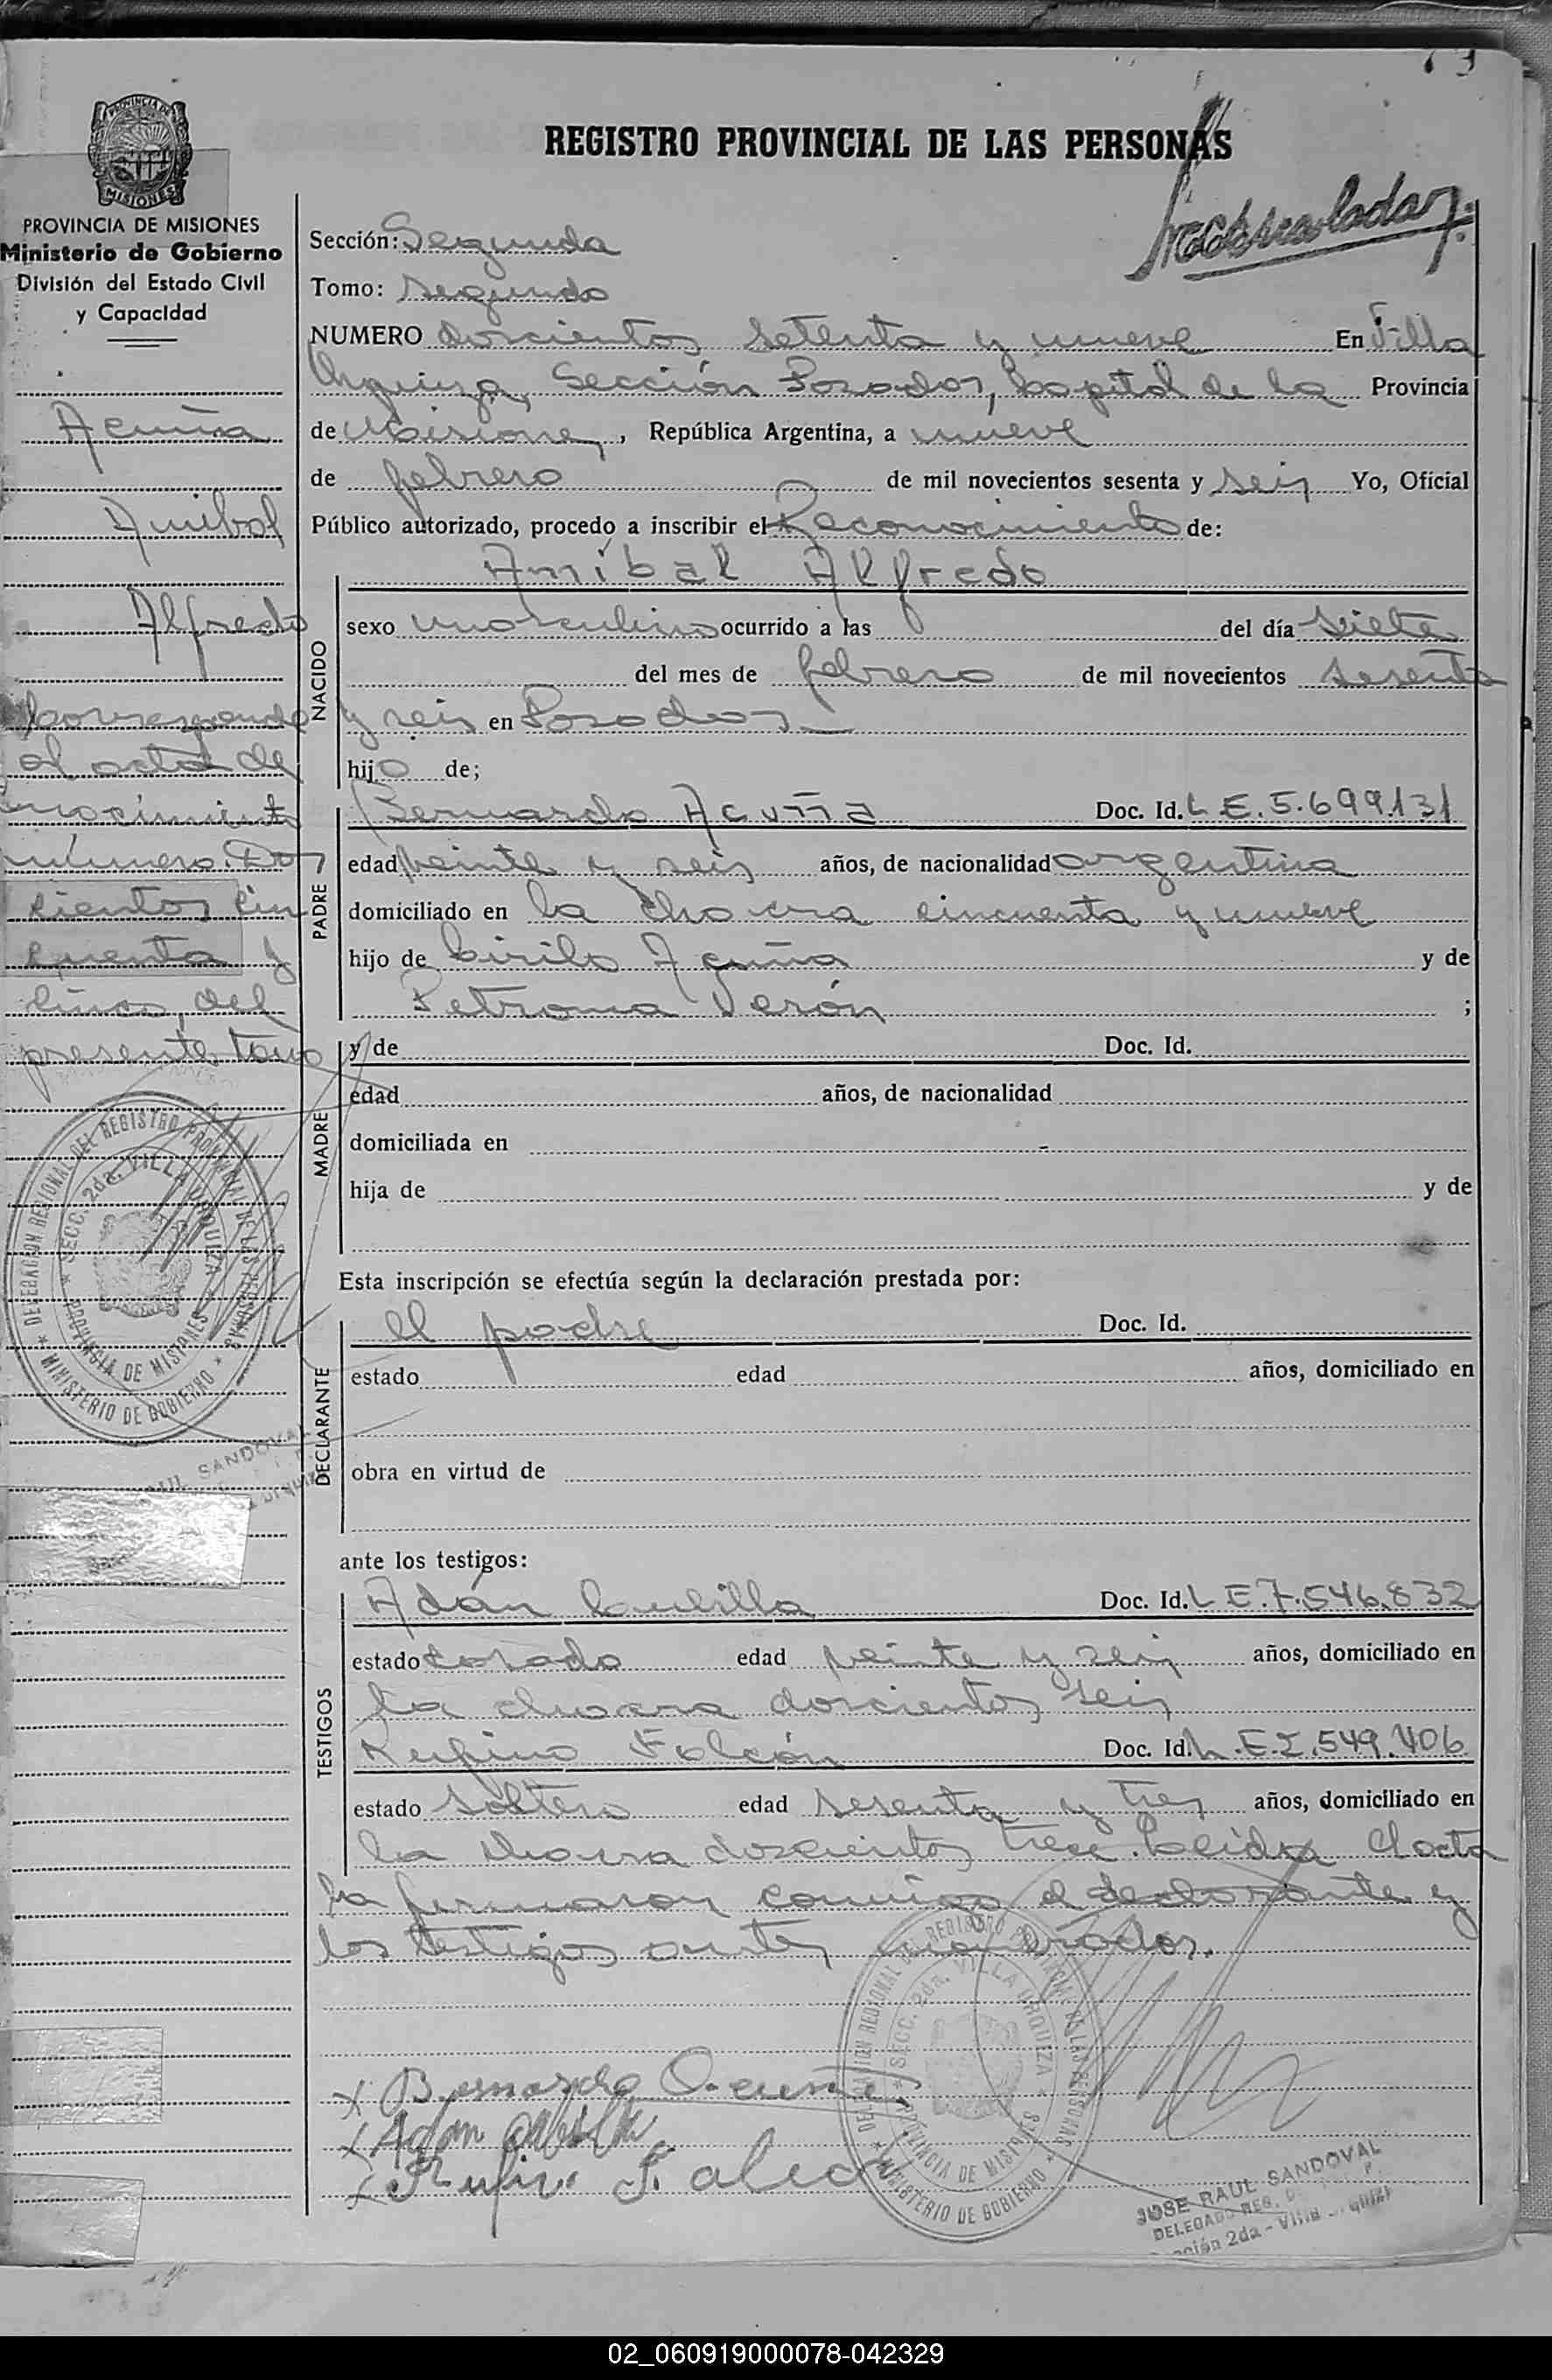 REGISTRO PROVINCIAL DE LAS PERSONAS
PROVINCIA DE MISIONES
Ministerio de Gobierno
División del Estado Civil
y Capacidad
Acuña
Anibal
Alfredo
Corresponde
al acta de
nacimiento
número Dos
cientos cin
cuenta y
cinco, del
presente tomo
Sección: Segunda
Tomo: Segundo
NUMERO doscientos setenta y nueve En Villa
Urquiza, Sección Posadas, Capital de la Provincia
de Misiones, República Argentina, a nueve
de febrero de mil novecientos sesenta y seis Yo, Oficial
Público autorizado, procedo a inscribir el Reconocimiento de:
NACIDO
Aníbal Alfredo
sexo masculino ocurrido a las del día siete
del mes de febrero de mil novecientos sesenta
y seis en Posadas
hijo de;
PADRE
Bernardo Acuña Doc. Id. L.E.5.699.131
edad veinte y seis años, de nacionalidad argentina
domiciliado en la chacra cincuenta y nueve
hijo de Cirilo Acuña y de
Petrona Verón ;
MADRE
y de Doc. Id.
edad años, de nacionalidad
domiciliada en
hija de y de
Esta inscripción se efectúa según la declaración prestada por:
DECLARANTE
el padre Doc. Id.
estado edad años, domiciliado en
obra en virtud de
ante los testigos:
TESTIGOS
Adán Doc. Id. L.E.7.546.832
estado casado edad veinte y seis años, domiciliado en
la chacra doscientos seis
Rufino Falcón Doc. Id. L.E. 549.406
estado soltero edad sesenta y tres años, domiciliado en
la chacra doscientos trece. Leída el acta
la firmaron conmigo el declarante y
los testigos antes nombrados.
Bernardo Acuña
Adan
Rufino Falcon
DELEGACION REGIONAL DEL REGISTRO PROVINCIAL DE LAS PERSONAS
SECC. 2da. VILLA URQUIZA
PROVINCIA DE MISIONES
MINISTERIO DE GOBIERNO
SANDOVAL
DELEGACION REGIONAL DEL REGISTRO PROVINCIAL DE LAS PERSONAS
SECC. 2da. VILLA URQUIZA
PROVINCIA DE MISIONES
MINISTERIO DE GOBIERNO
JOSE RAUL SANDOVAL
DELEGADO REG.
2da - Villa
02_060919000078-042329